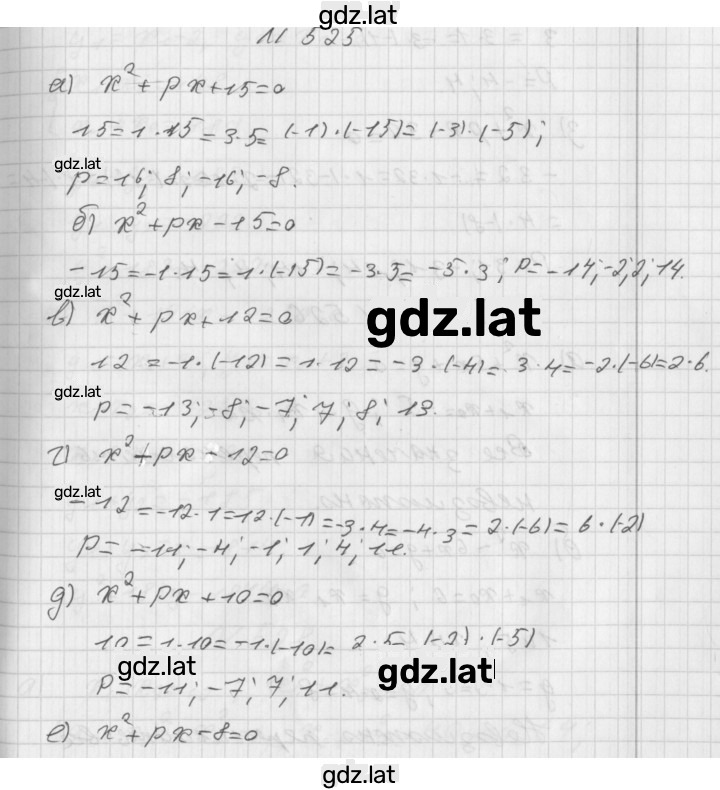 gdz.lat
N 525
а) x² + px + 15 = 0
15 = 1 · 15 = 3 · 5 = (-1) · (-15) = (-3) · (-5);
gdz.lat
p = 16; 8; -16; -8.
б) x² + px - 15 = 0
-15 = -1 · 15 = 1 · (-15) = -3 · 5 = -5 · 3; p = -14; -2; 2; 14.
в) x² + px + 12 = 0
gdz.lat
12 = -1 · (-12) = 1 · 12 = -3 · (-4) = 3 · 4 = -2 · (-6) = 2 · 6.
gdz.lat
p = -13; -8; -7; 7; 8; 13.
г) x² + px - 12 = 0
gdz.lat
-12 = -12 · 1 = 12 · (-1) = -3 · 4 = -4 · 3 = 2 · (-6) = 6 · (-2)
p = -11; -4; -1; 1; 4; 11.
д) x² + px + 10 = 0
10 = 1 · 10 = -1 · (-10) = 2 · 5 = (-2) · (-5)
gdz.lat
gdz.lat
p = -11; -7; 7; 11.
е) x² + px - 8 = 0
gdz.lat